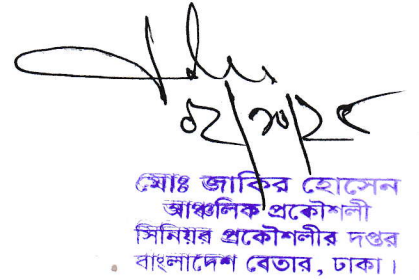 ০২/১০/২৫
মোঃ জাকির হোসেন
আঞ্চলিক প্রকৌশলী
সিনিয়র প্রকৌশলীর দপ্তর
বাংলাদেশ বেতার, ঢাকা।